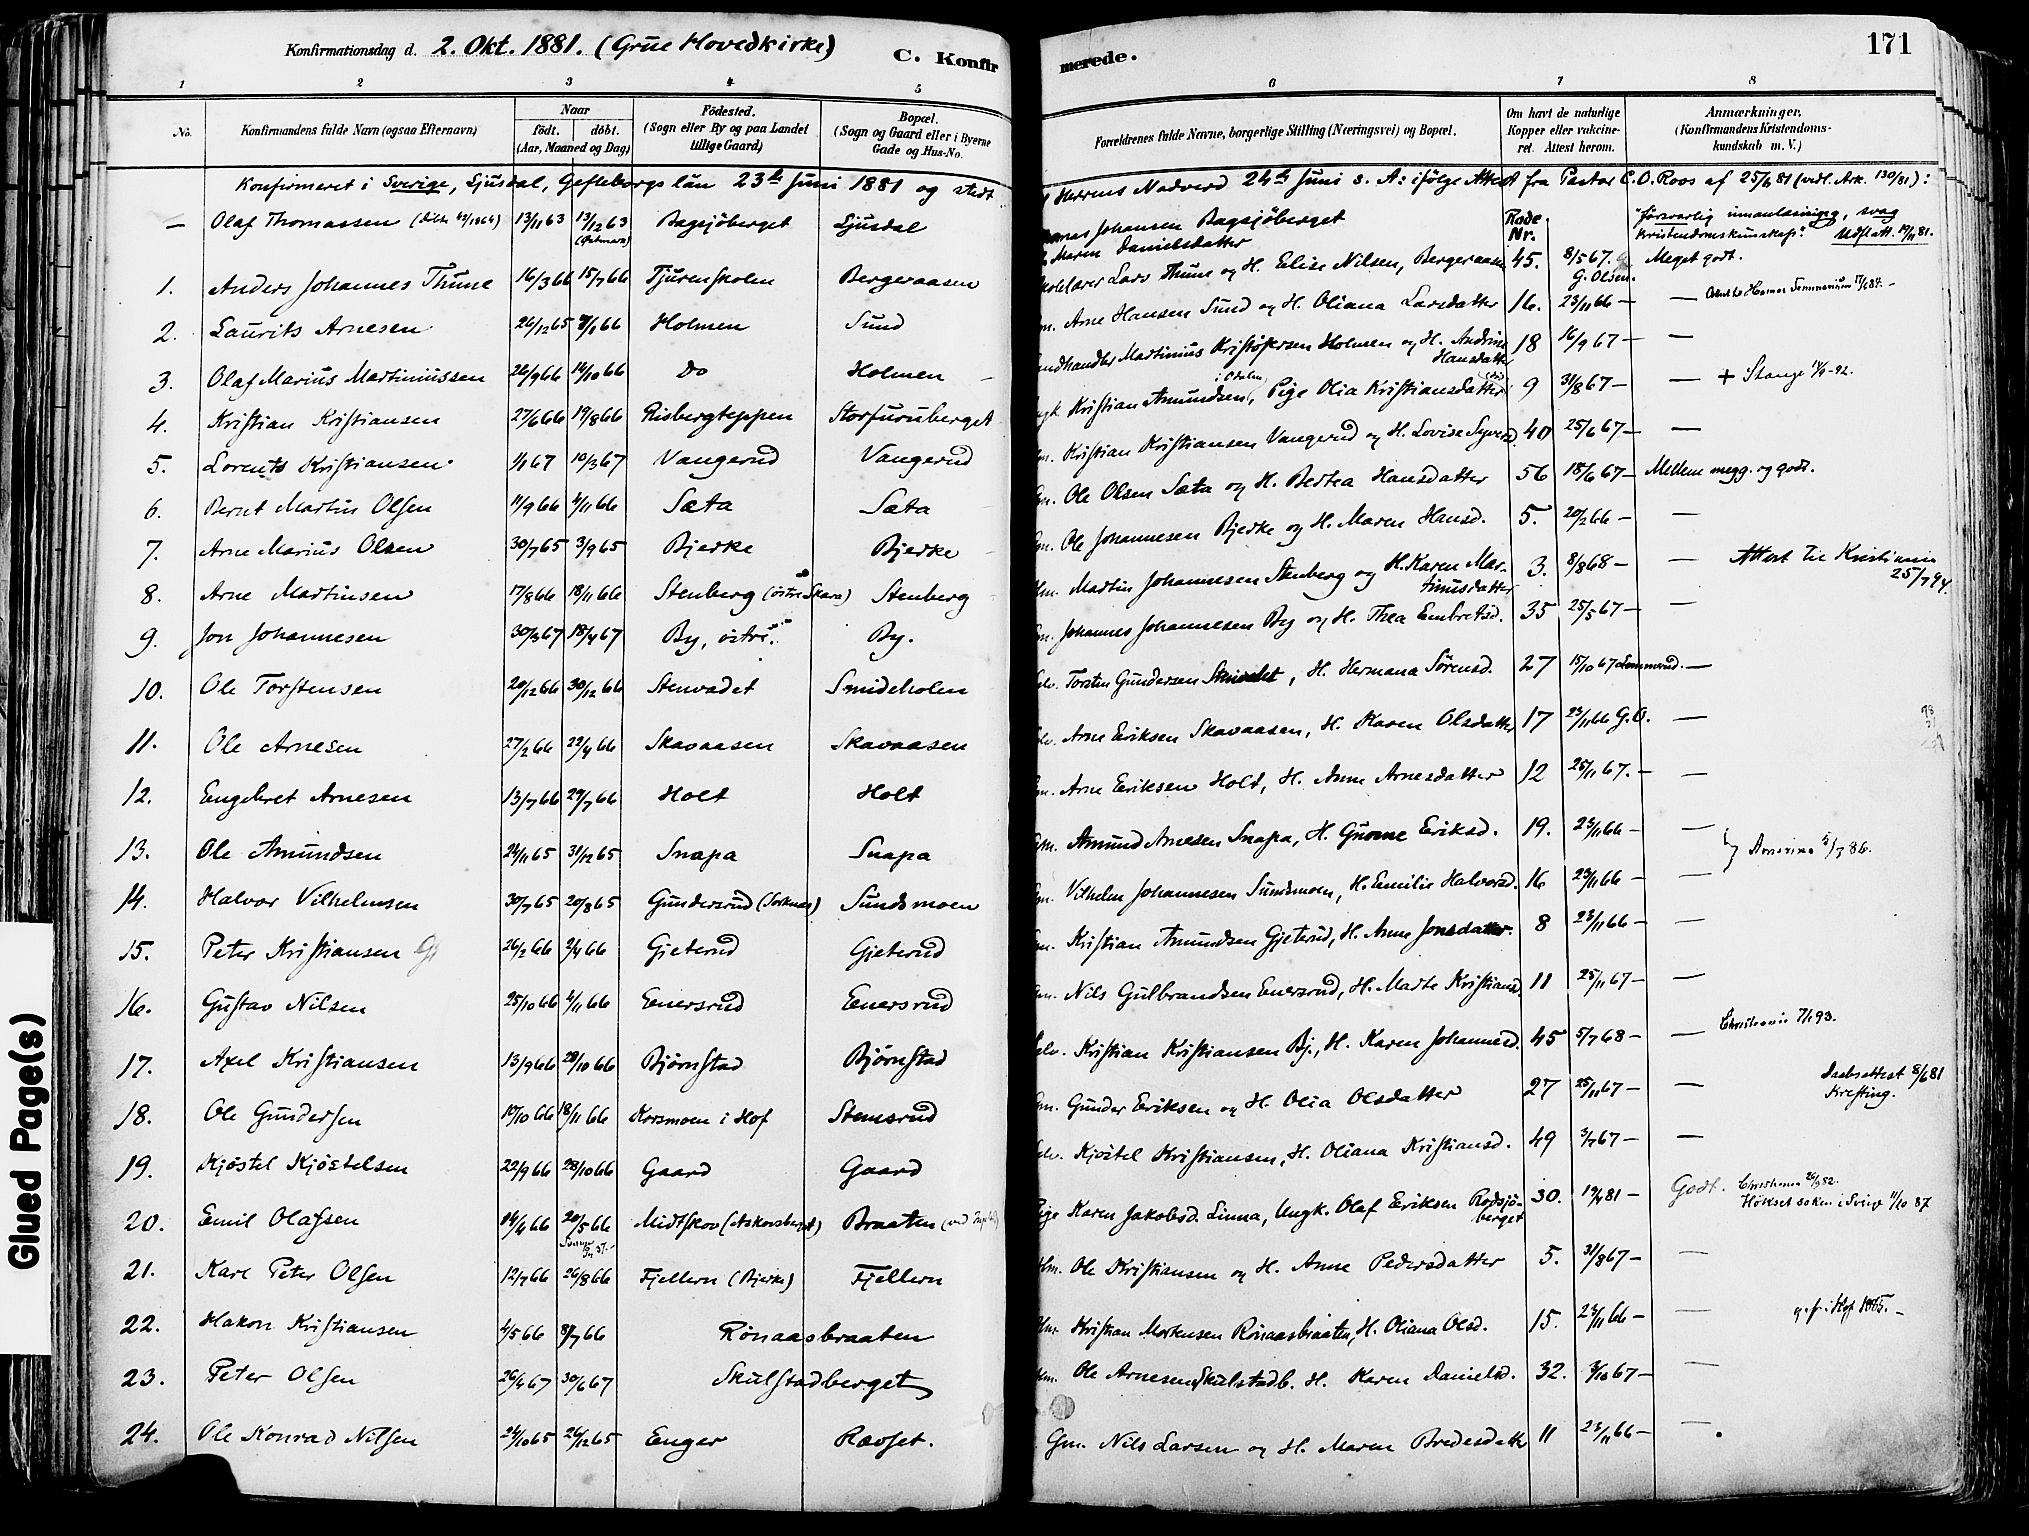 Konfirmationsdag d. 2. Okt. 1881. (Grue Hovedkirke)
C. Konfirmerede.
171
1 2 3 4 5 6 7 8
No. Konfirmandens fulde Navn (ogsaa Efternavn) Naar födt. döbt. (Aar, Maaned og Dag) Födested. (Sogn eller By og paa Landet tillige Gaard) Bopæl. (Sogn og Gaard eller i Byerne Gade og Hus-No. Forældrenes fulde Navne, borgerlige Stilling (Næringsvei) og Bopæl. Om havt de naturlige Kopper eller vakcineret. Attest herom. Anmærkninger. (Konfirmandens Kristendomskundskab m. V.)
Konfirmeret i Sverige, Ljusdal, Gefleborgs län 23de Juni 1881 og stedt Herrens Nadverd 24de Juni s. A: ifölge Attest fra Pastor C. O. Roos af 25/6 81 (vedl. Ark. 130/81):
— Olaf Thomassen 13/11 63 13/12 63 Bagsjöberget Ljusdal Johansen Bagsjöberget Maren Danielsdatter Rode Nr. "försvarlig innanläsning, svag Kristendomskunskap". Udfl. att. 19/11 81.
1. Anders Johannes Thune 16/3 66 15/7 66 Tjurenskolen Bergeraasen Lars Thune og H. Elise Nilsen, Bergeraasen 45. 8/5 67. G. Olsen. Meget godt.
2. Laurits Arnesen 26/12 65 7/1 66 Holmen Sund Arne Hansen Sund og H. Oliana Larsdatter 16. 23/11 66 — —
3. Olaf Marius Martiniussen 26/9 66 14/10 66 Do Holmen Landhandler Martinius Kristofersen Holmen og H. Andrine Hansdatter 18 16/9 67 — —
4. Kristian Kristiansen 27/6 66 19/8 66 Risbergteppen Storfuruberget Ungk Kristian Amundsen, i Odalen Pige Olia Kristiansdatter 9 31/8 67 — — + Stange
5. Lorents Kristiansen 1/1 67 10/3 67 Vangerud Vangerud Kristian Kristiansen Vangerud og H. Lovise Syversd. 40 25/6 67 — —
6. Bernt Martin Olsen 11/9 66 4/11 66 Sæta Sæta Gm. Ole Olsen Sæta og H. Bertea Hansdatter 56 18/6 67 — Mellem megg. og godt.
7. Arne Marius Olsen 30/7 65 3/9 65 Bjerke Bjerke Gm. Ole Johannesen Bjerke og H. Maren Hansd. 5. 20/2 66 — —
8. Arne Martinsen 17/8 66 18/11 66 Stenberg (östre Skara) Stenberg Hm. Martin Johannesen Stenberg og H. Karen Martinusdatter 3. 8/8 68 — — Attest til Kristiania 25/7 94.
9. Jon Johannesen 30/3 67 18/4 67 By, östre By. Gm. Johannes Johannesen By og H. Thea Embretsd. 35 25/5 67 — —
10. Ole Torstensen 20/12 66 30/12 66 Stenvadet Smideholen Torsten Gundersen Stenvadet, H. Hermana Sörensd. 27 15/10 67 Lemmerud. —
11. Ole Arnesen 27/2 66 29/4 66 Skavaasen Skavaasen Arne Eriksen Skavaasen, H. Karen Olsdatter 17 23/11 66 G.O. —
12. Engebret Arnesen 13/7 66 29/7 66 Holt Holt Gm. Arne Eriksen Holt, H. Anne Arnesdatter 12 25/11 67. — —
13. Ole Amundsen 24/11 65 31/12 65 Snapa Snapa Gm. Amund Arnesen Snapa, H. Gunne Eriksd. 19. 23/11 66 — —
14. Halvor Vilhelmsen 30/7 65 20/8 65 Gundersrud Sundsmoen Gm. Vilhelm Johannesen Sundsmoen, H. Emilie Halvorsd. 16 23/11 66 — —
15. Peter Kristiansen 26/2 66 2/4 66 Gjeterud Gjeterud Gm. Kristian Amundsen Gjeterud, H. Anne Jonsdatter. 8 23/11 66 — —
16. Gustav Nilsen 25/10 66 4/11 66 Enersrud Enersrud Gm. Nils Gulbrandsen Enersrud, H. Marte Kristiansd. 11 25/11 67 — —
17. Axel Kristiansen 13/9 66 28/10 66 Björnstad Björnstad Selv. Kristian Kristiansen Bj., H. Karen Johannesd. 45 5/7 68 — — Christiania 7/1 93.
18. Ole Gundersen 10/10 66 18/11 66 Korsmoen i Hof Stensrud Gm. Gunder Eriksen og H. Olia Olsdatter 27 25/11 67 — — Daabsattest 8/6 81 Kresting.
19. Kjöstel Kjöstelsen 22/9 66 28/10 66 Gaard Gaard Selv. Kjöstel Kristiansen, H. Oliana Kristiansd. 49 3/7 67 — —
20. Emil Olafsen 14/4 66 20/5 66 Midtskov (Askorsberget) Braaten Pige Karen Jakobsd. Linna, Ungk. Olaf Eriksen Rodsjöberget 30. 19/4 81 — Godt.
21. Karl Peter Olsen 12/7 66 26/8 66 Fjellern (Bjerke) Fjellern Hm. Ole Kristiansen og H. Anne Pedersdatter 5. 31/8 67 — —
22. Hakon Kristiansen 4/5 66 8/7 66 Rönaasbraaten Hm. Kristian Mortensen Rönaasbraaten, H. Oliana Olsd. 15. 23/11 66 — —
23. Peter Olsen 26/4 67 30/6 67 Skulstadberget Hm. Ole Arnesen Skulstadb. H. Karen Danielsd. 32. 3/10 67 — —
24. Ole Konrad Nilsen 24/10 65 24/12 65 Enger Rævset. Gm. Nils Larsen og H. Maren Bredesdatter 11 23/11 66 — —
Glued Page(s)